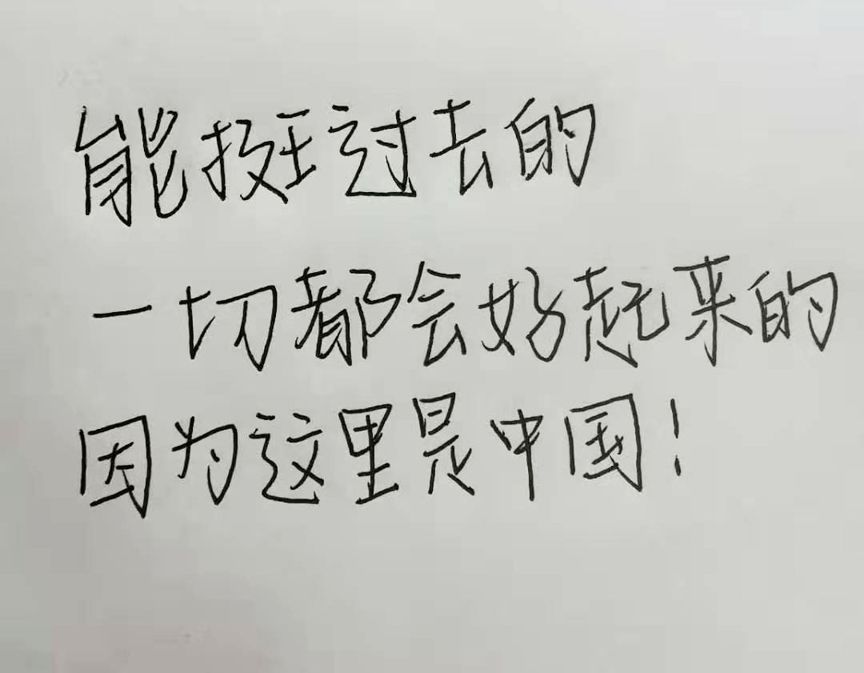 能挺过去的
一切都会好起来的
因为这里是中国！